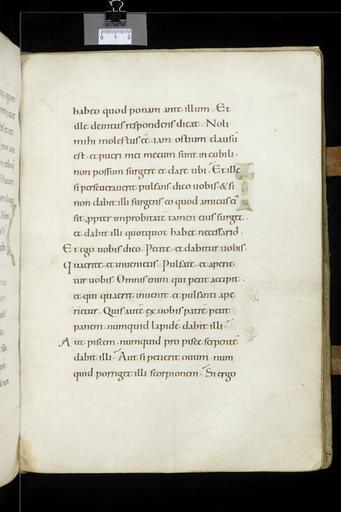 habeo quod ponam ante illum. Et
ille deintus respondens dicat. Noli
mihi molestus eē. iam ostium clausū
est. et pueri mei mecum sunt in cubili.
non possum surgere et dare tibi. Et ille
si perseuerauerit pulsans dico uobis & si
non dabit illi surgens eo quod amicus ei'
sit. ppter improbitatē tamen eius surget.
et dabit illi quotquot habet necessario.
Et ego uobis dico. Petite. et dabitur uobis.
Querite. et inuenietis. Pulsate. et aperie
tur uobis. Omnis enim qui petit accipit.
et qui querit inuenit. et pulsanti ape
rietur. Quis autē ex uobis patrē petit
panem. numquid lapidē dabit illi.
Aut piscem. numquid pro pisce serpentē
dabit illi. Aut si petierit ouum. num
quid porriget illi scorpionem. Si ergo